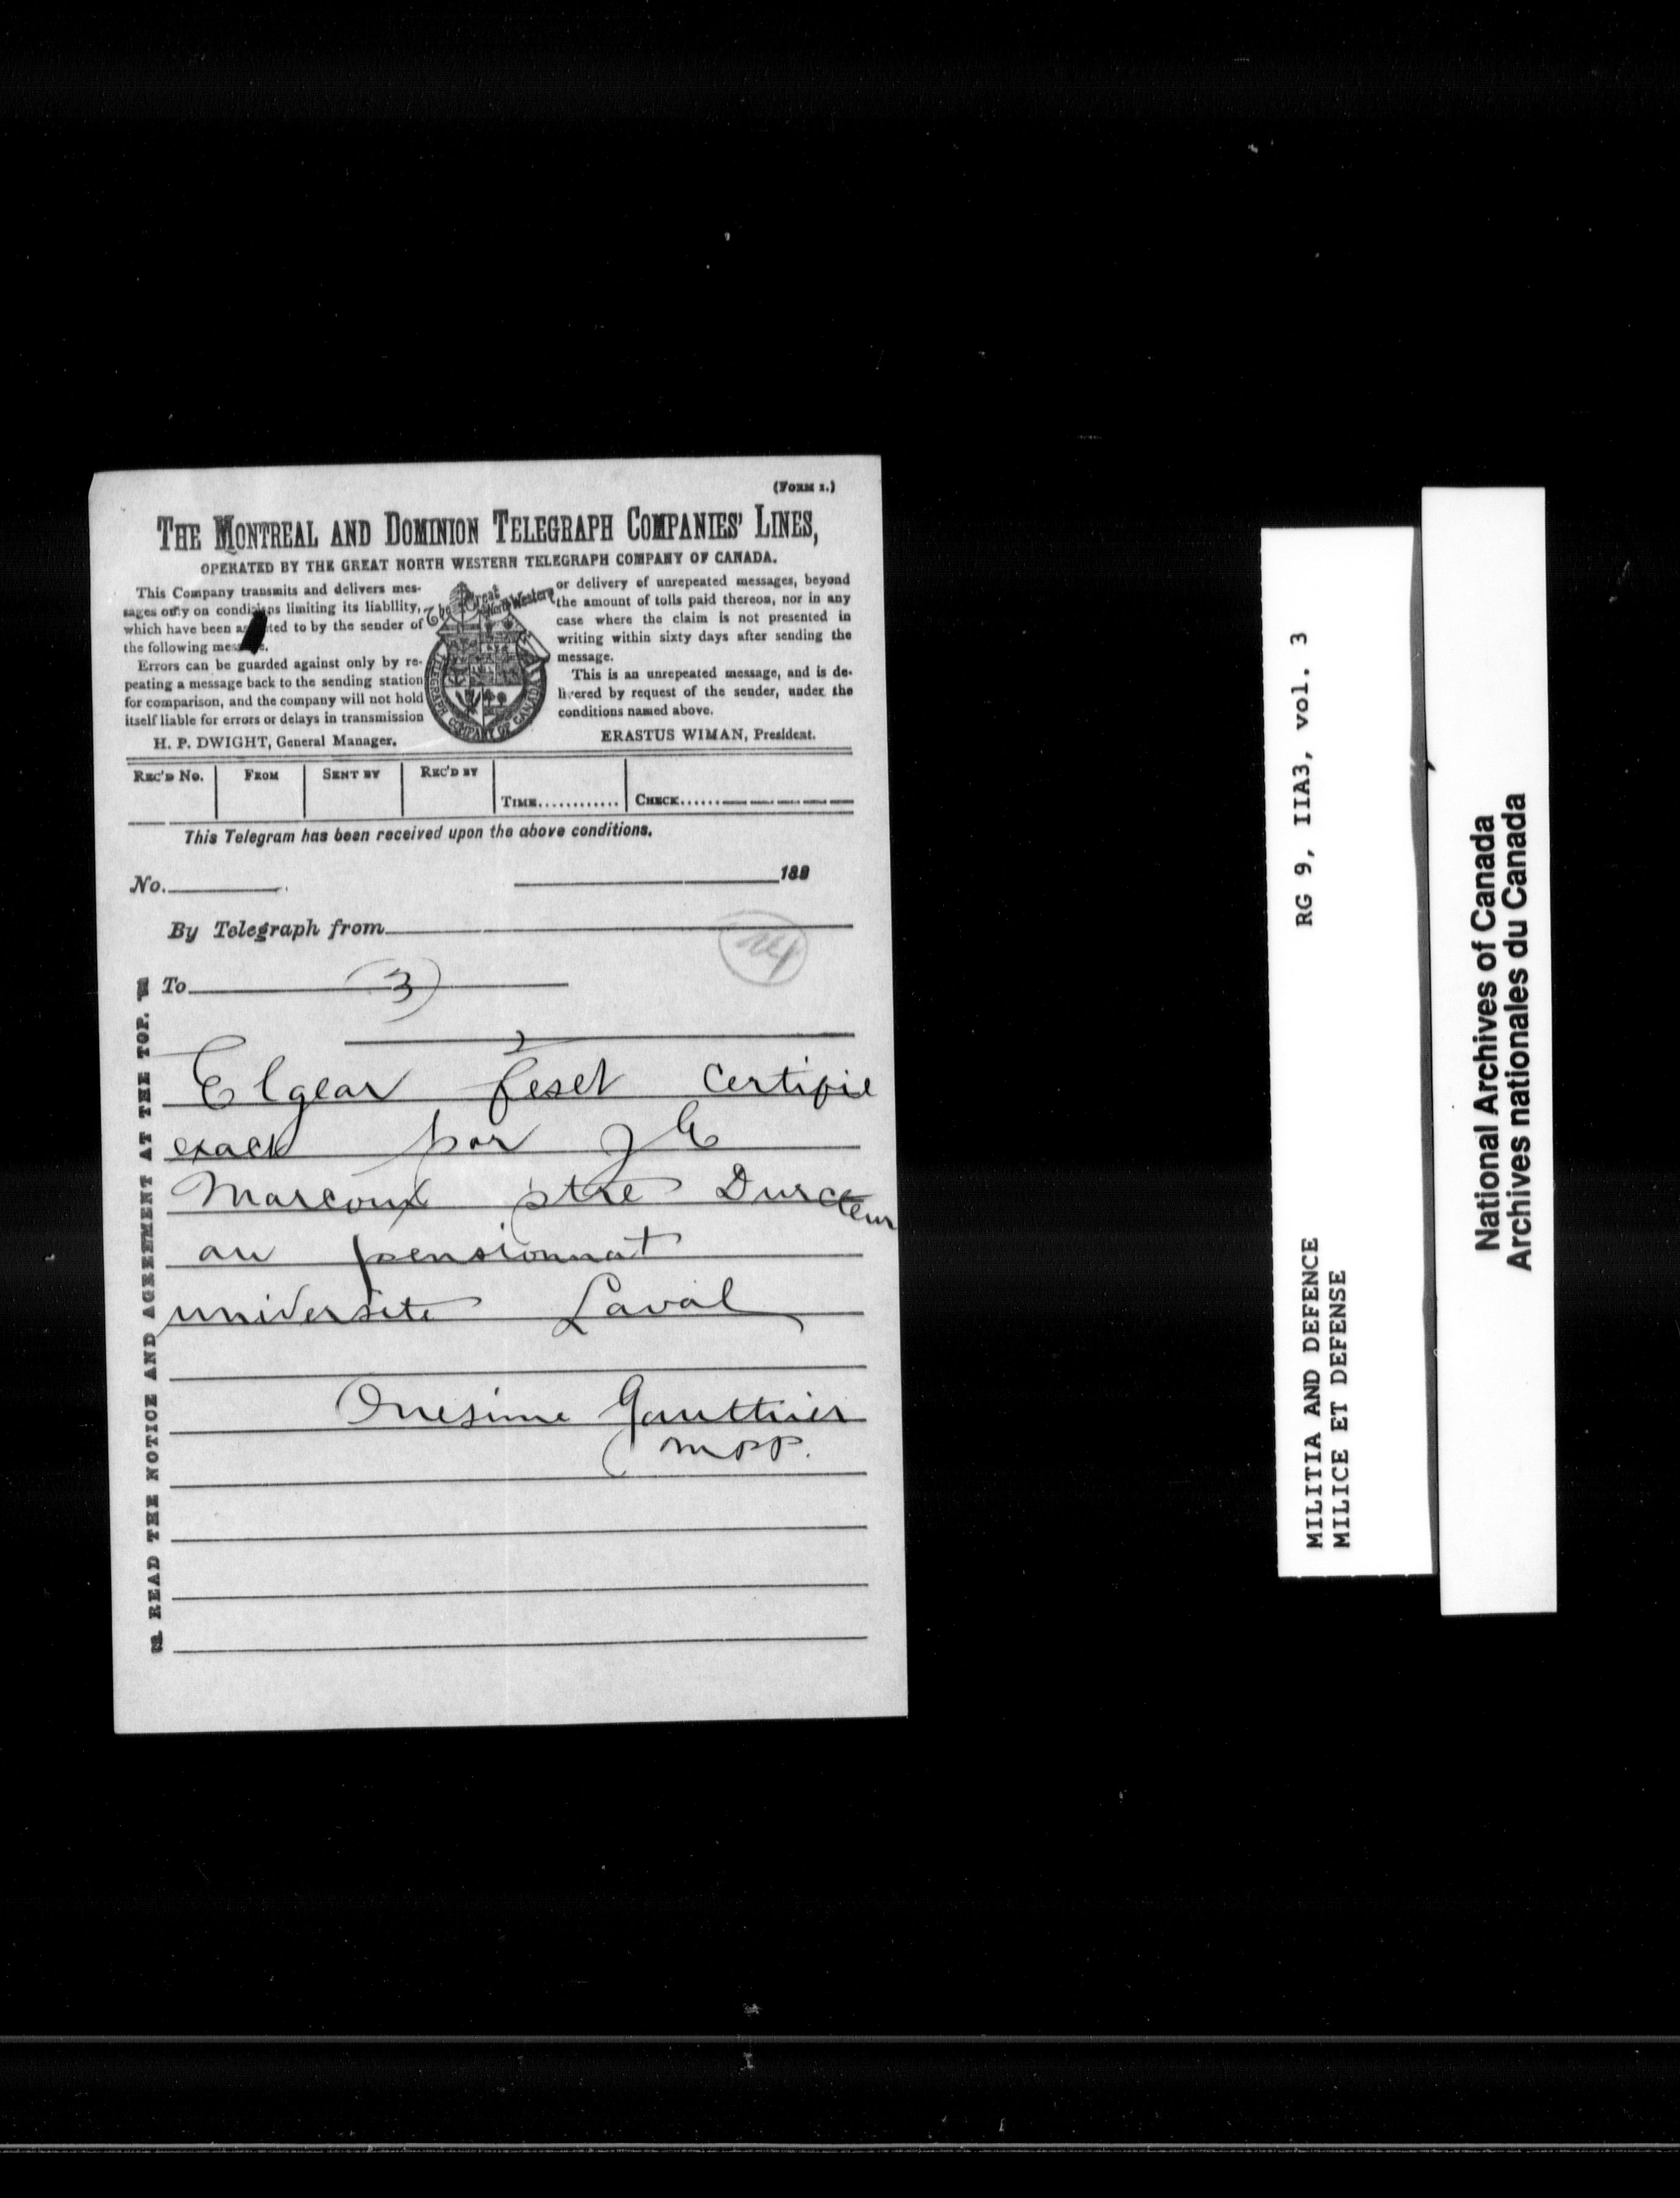 (FORM 1.)
THE MONTREAL AND DOMINION TELEGRAPH COMPANIES' LINES,
OPERATED BY THE GREAT NORTH WESTERN TELEGRAPH COMPANY OF CANADA.
This Company transmits and delivers mes-
sages only on conditions limiting its liability,
which have been assented to by the sender of
the following message.
Errors can be guarded against only by re-
peating a message back to the sending station
for comparison, and the company will not hold
itself liable for errors or delays in transmission
H. P. DWIGHT, General Manager.
The Great North Western
TELEGRAPH COMPANY OF CANADA
or delivery of unrepeated messages, beyond
the amount of tolls paid thereon, nor in any
case where the claim is not presented in
writing within sixty days after sending the
message.
This is an unrepeated message, and is de-
livered by request of the sender, under the
conditions named above.
ERASTUS WIMAN, President.
REC'D No. FROM SENT BY REC'D BY TIME............ CHECK......
This Telegram has been received upon the above conditions.
No. 188
By Telegraph from
24
To 3)
READ THE NOTICE AND AGREEMENT AT THE TOP.
Elgear feset Certifie
exact par J E
Marcoux ptre Directeur
au pensionnat
universite Laval
Onesime Gauthier
MPP.
RG 9, IIA3, vol. 3
MILITIA AND DEFENCE
MILICE ET DEFENSE
National Archives of Canada
Archives nationales du Canada